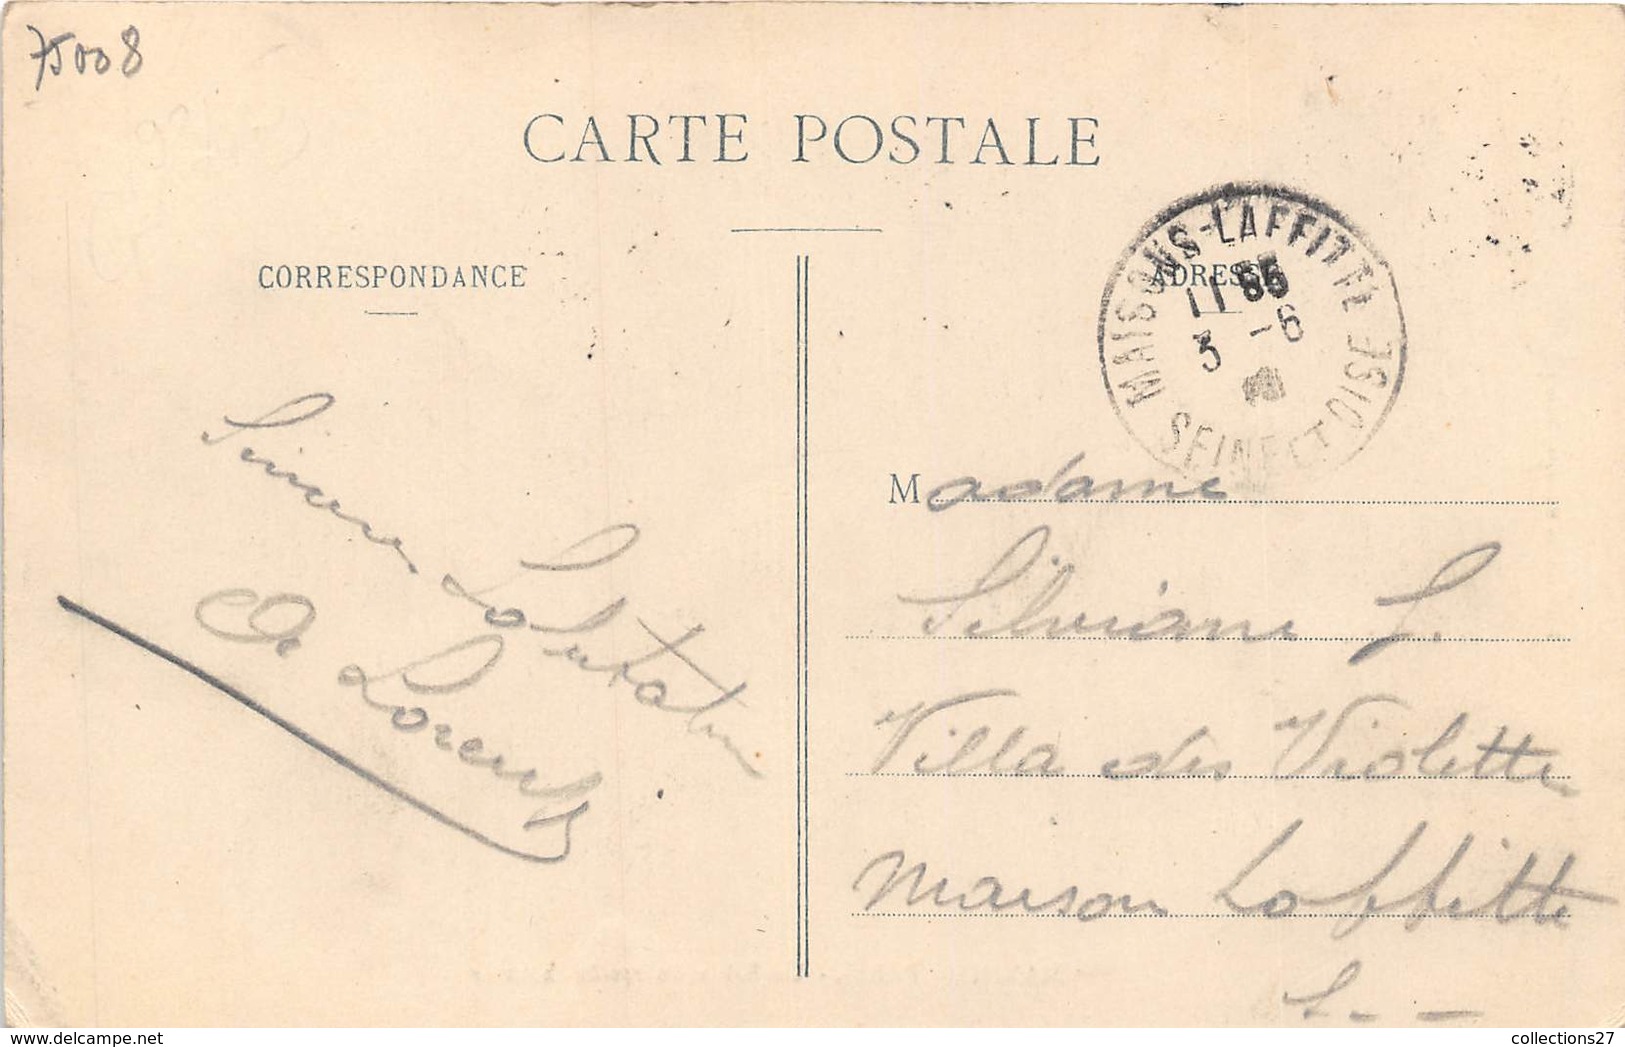 75008
CARTE POSTALE
CORRESPONDANCE
ADRESSE
MAISONS-LAFFITTE
11 55
3 -6
SEINE ET OISE
Sincères
Salutations
De Lorentz
Madame
Silviane L.
Villa des Violettes
Maison Laffitte
collections27